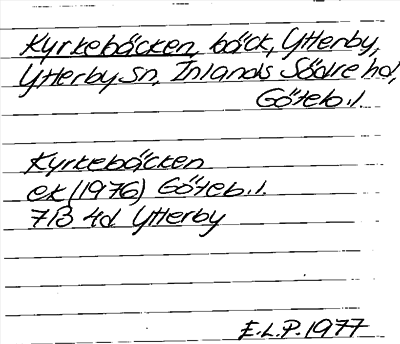 Kyrkebäcken, bäck, Ytterby,
Ytterby sn, Inlands Södre hd,
Göteb. l.
Kyrkebäcken
ek (1976) Göteb. l.
7B 4d Ytterby
E.L.P. 1977